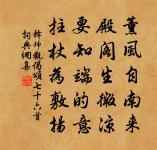 薰風自南來
殿閣生微涼
要知端的意
拄杖為敷揚
頌七十六首
釋師觀偈
詞典網集